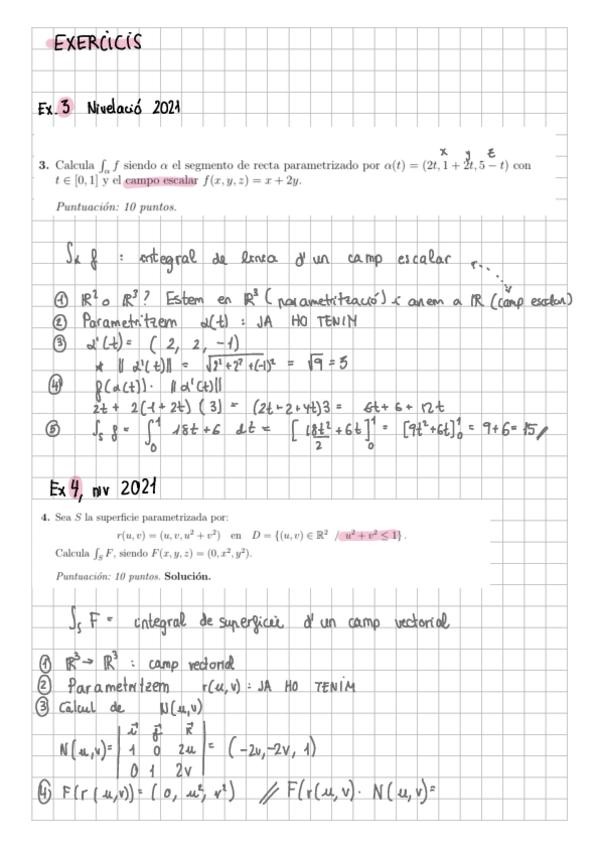 EXERCICIS
Ex. 3 Nivelació 2021
x y z
3. Calcula ∫α f siendo α el segmento de recta parametrizado por α(t) = (2t, 1 + 2t, 5 − t) con
t ∈ [0, 1] y el campo escalar f(x, y, z) = x + 2y.
Puntuación: 10 puntos.
∫α f : integral de línea d'un camp escalar
① ℝ² o ℝ³? Estem en ℝ³ (parametrització) i anem a ℝ (camp escalar)
② Parametritzem α(t) : JA HO TENIM
③ α'(t) = (2, 2, -1)
* ||α'(t)|| = √2²+2²+(-1)² = √9 = 3
④ f(α(t)) · ||α'(t)||
2t + 2(1+2t) (3) = (2t+2+4t)3 = 6t + 6 + 12t
⑤ ∫s f = ∫₀¹ 18t+6 dt = [18t²/2 + 6t]₀¹ = [9t²+6t]₀¹ = 9+6 = 15//
Ex 4, niv 2021
4. Sea S la superficie parametrizada por:
r(u, v) = (u, v, u² + v²) en D = {(u, v) ∈ ℝ² / u² + v² ≤ 1}.
Calcula ∫S F, siendo F(x, y, z) = (0, x², y²).
Puntuación: 10 puntos. Solución.
∫s F = integral de superficie d'un camp vectorial
① ℝ³ → ℝ³ : camp vectorial
② Parametritzem r(u,v) : JA HO TENIM
③ Càlcul de N(u,v)
N(u,v) = | i j k | = (-2u, -2v, 1)
1 0 2u
0 1 2v
④ F(r(u,v)) = (0, u², v²) // F(r(u,v) · N(u,v) =